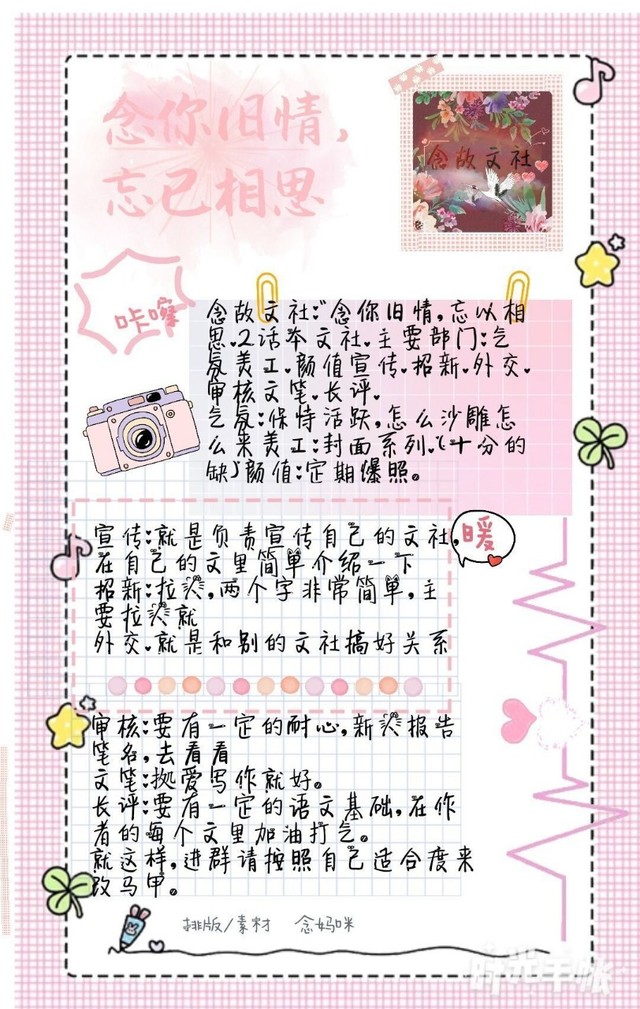 念你旧情，
忘已相思
念故文社
咔嚓
念故文社:“念你旧情，忘以相
思.2话本文社.主要部门:气
氛美工.颜值宣传.招新.外交.
审核文笔.长评.
气氛:保持活跃,怎么沙雕怎
么来美工:封面系列.(十分的
缺)颜值:定期爆照。
宣传:就是负责宣传自己的文社,
在自己的文里简单介绍一下
暖
招新:拉人,两个字非常简单,主
要拉人就
外交.就是和别的文社搞好关系
审核:要有一定的耐心,新人报告
笔名,去看看
文笔:热爱写作就好。
长评:要有一定的语文基础,在作
者的每个文里加油打气。
就这样,进群请按照自己适合度来
改马甲。
排版/素材 念妈咪
时光手帐